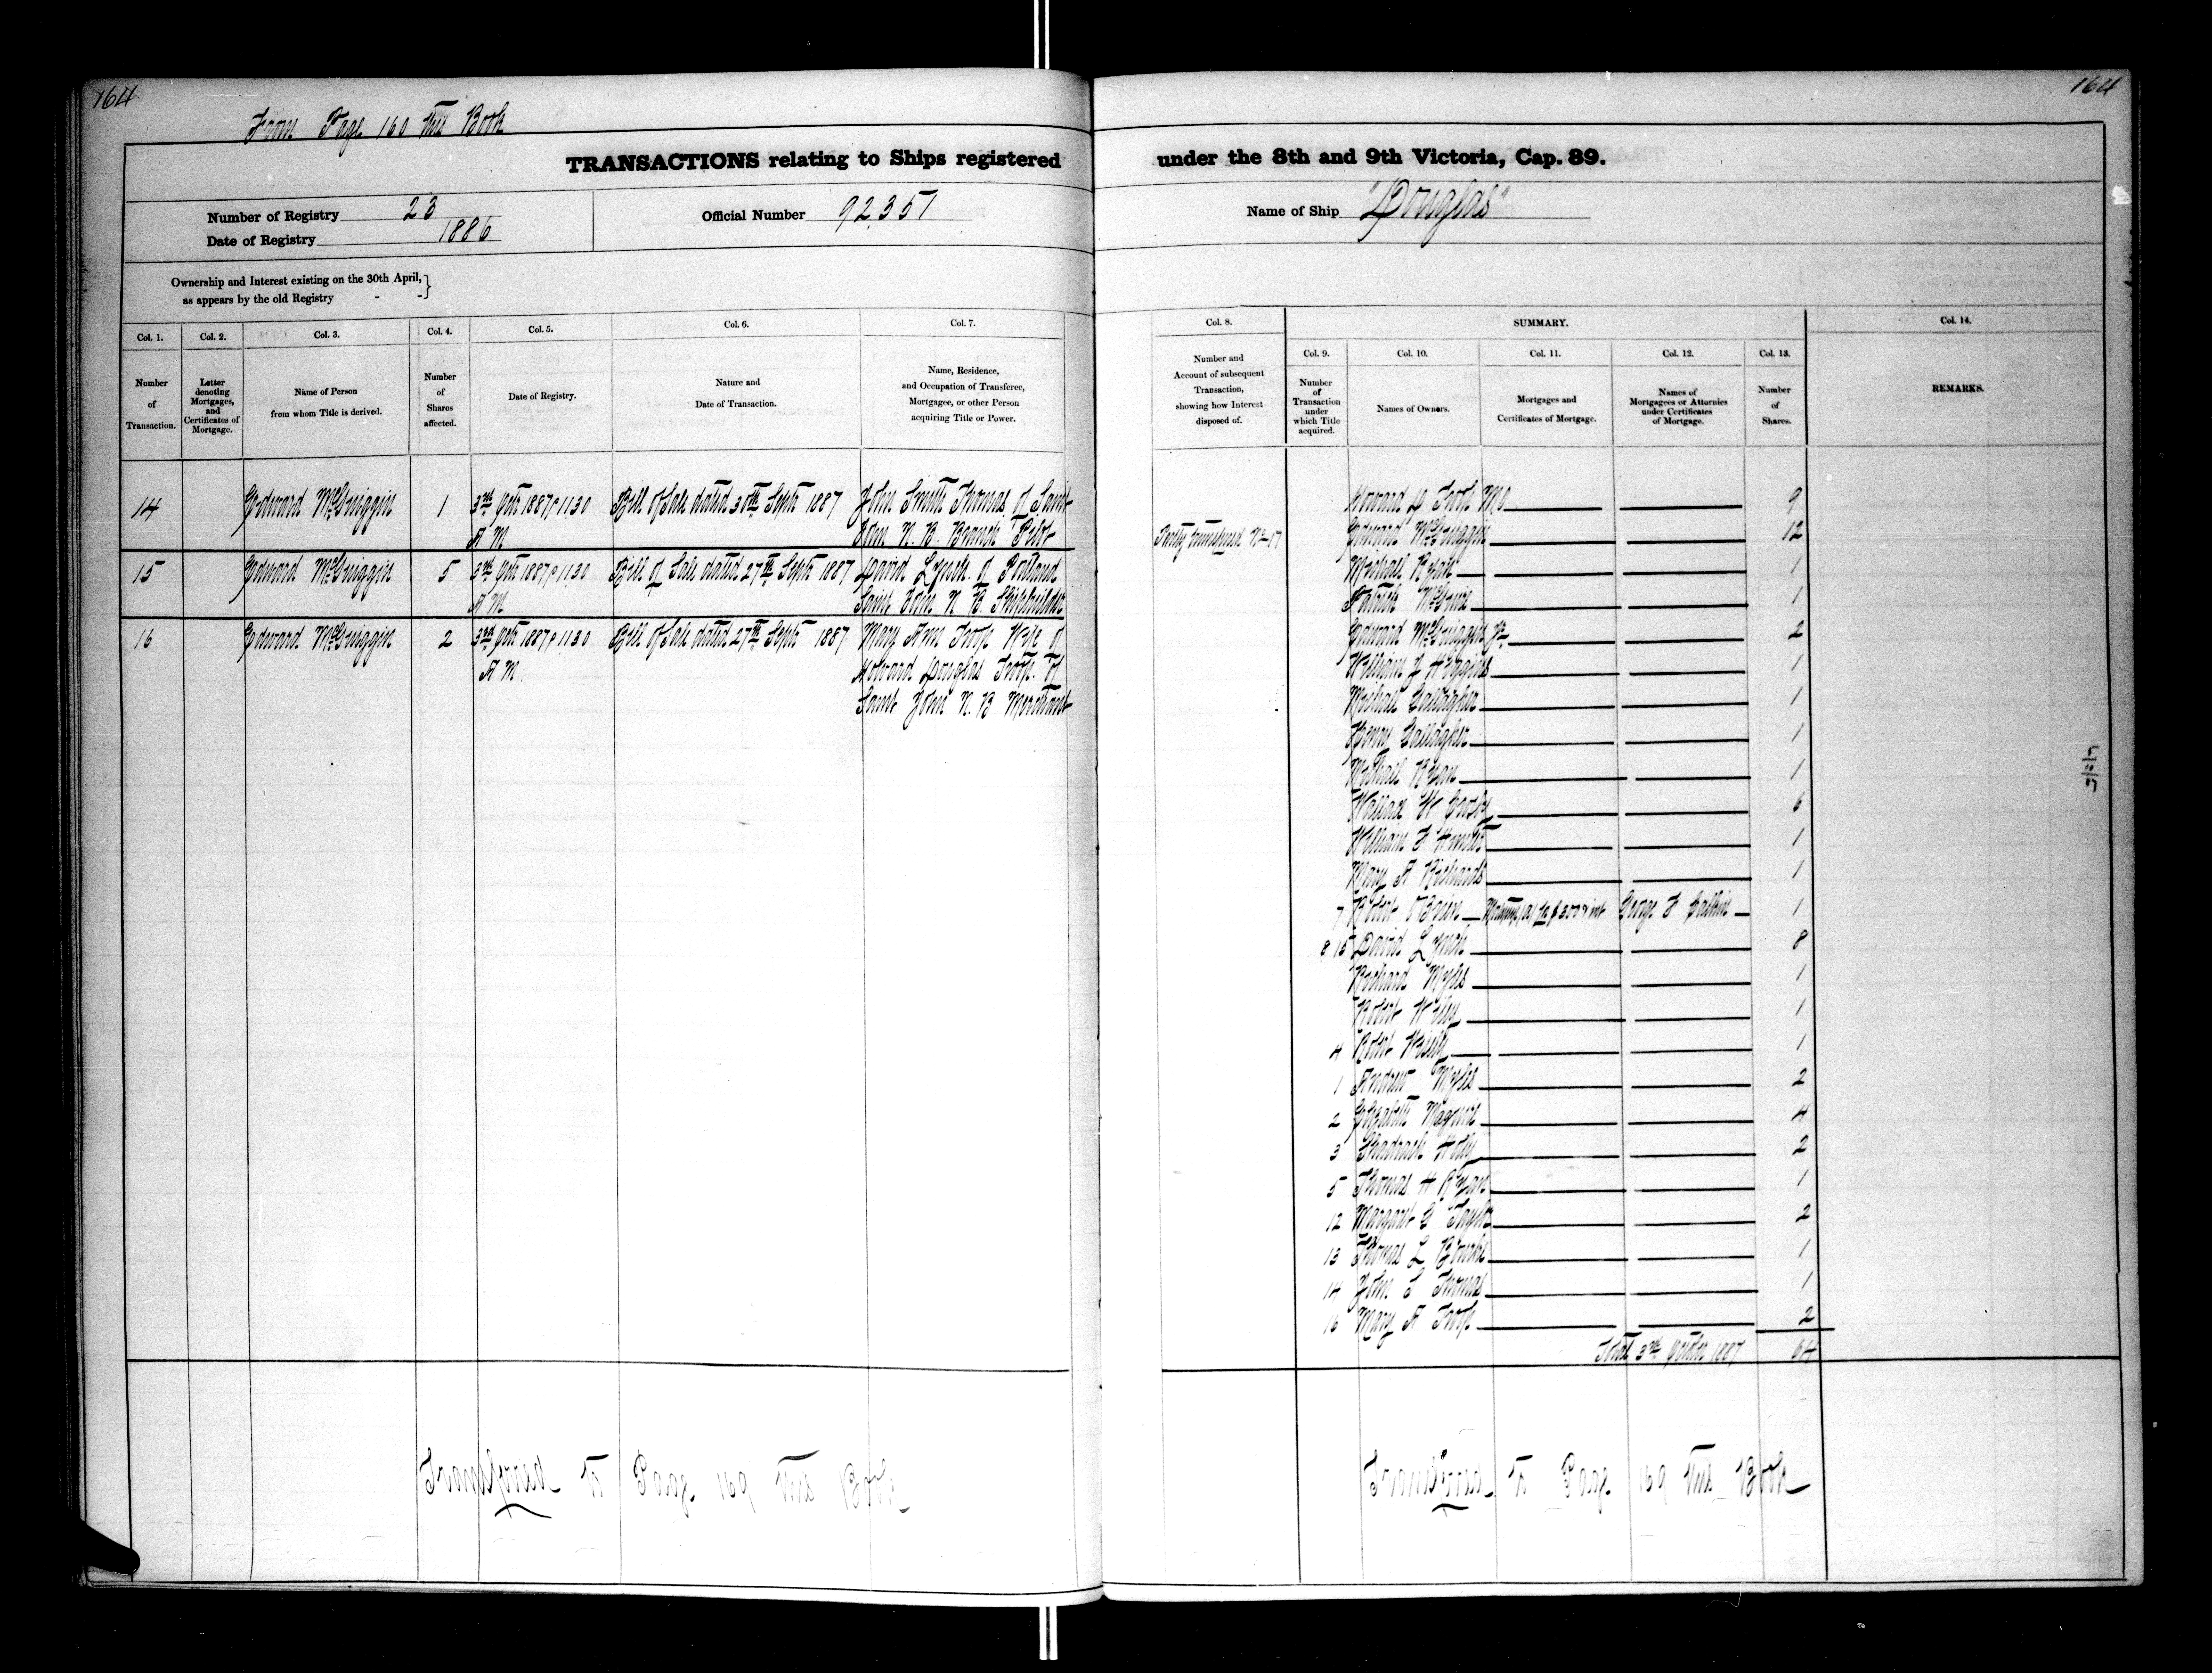 164
From Page 160 this Book
TRANSACTIONS relating to Ships registered
Number of Registry 23
Date of Registry 1886
Official Number 92351
Ownership and Interest existing on the 30th April,
as appears by the old Registry - -
Col. 1. Number of Transaction.
Col. 2. Letter denoting Mortgages, and Certificates of Mortgage.
Col. 3. Name of Person from whom Title is derived.
Col. 4. Number of Shares affected.
Col. 5. Date of Registry.
Col. 6. Nature and Date of Transaction.
Col. 7. Name, Residence, and Occupation of Transferee, Mortgagee, or other Person acquiring Title or Power.
14 Edward McGuiggin 1 3rd Octr 1887 11.30 Bill of Sale dated 30th Septr 1887 John Smith Thomas of Saint
A M John N. B. Branch Pilot
15 Edward McGuiggin 5 3rd Octr 1887 11.30 Bill of Sale dated 27th Septr 1887 David Lynch of Portland
A M Saint John N B. Shipbuilder
16 Edward McGuiggin 2 3rd Octr 1887 11.30 Bill of Sale dated 27th Septr 1887 Mary Ann Troop Wife of
A M. Howard Douglas Troop of
Saint John N. B Merchant
164
under the 8th and 9th Victoria, Cap. 89.
Name of Ship "Douglas"
Col. 8. Number and Account of subsequent Transaction, showing how Interest disposed of.
SUMMARY.
Col. 9. Number of Transaction under which Title acquired.
Col. 10. Names of Owners.
Col. 11. Mortgages and Certificates of Mortgage.
Col. 12. Names of Mortgagees or Attornies under Certificates of Mortgage.
Col. 13. Number of Shares.
Col. 14. REMARKS.
Howard D Troop MO 9
Partly transferred No 17 Edward McGuiggin 12
Michael Ryan 1
Patrick McGuire 1
Edward McGuiggin Jr 2
William J Higgins 1
Michael Gallagher 1
Henry Gallagher 1
Michael Ryan 1
Wallace W 6
William F 1
Mary A Richards 1
7 Robert O'Brien Mortgage (A) for $200 & int George F 1
8 15 David Lynch 8
Richard Myles 1
Robert Wiley 1
4 Robt 1
1 Andrew Myles 2
2 Elizabeth 4
3 Shadrach Holly 2
5 Thomas H Ryan 1
12 Margaret G Taylor 2
13 Thomas L Bourke 1
14 John S Thomas 1
16 Mary A Troop 2
Total 3rd October 1887 64